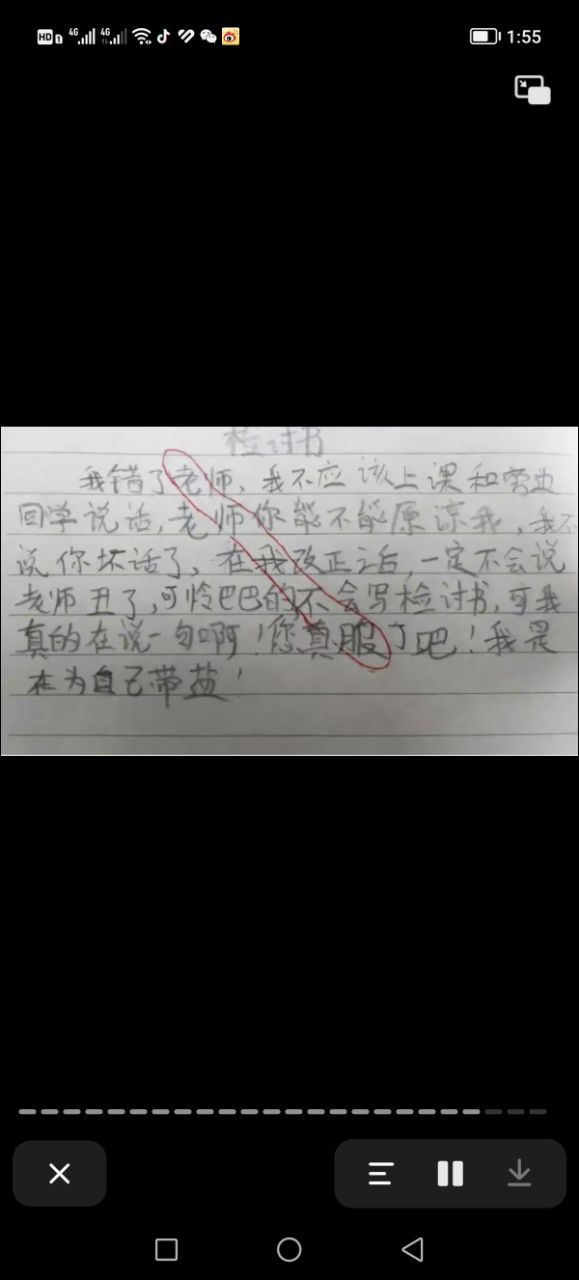 HD 1 4G 4G 1:55
检讨书
我错了老师、我不应该上课和旁边
同学说话,老师你能不能原谅我,我不
说你坏话了、在我改正之后,一定不会说
老师丑了,可怜巴巴的不会写检讨书,
真的在说一句啊!您真服了吧!我是
在为自己带盐!